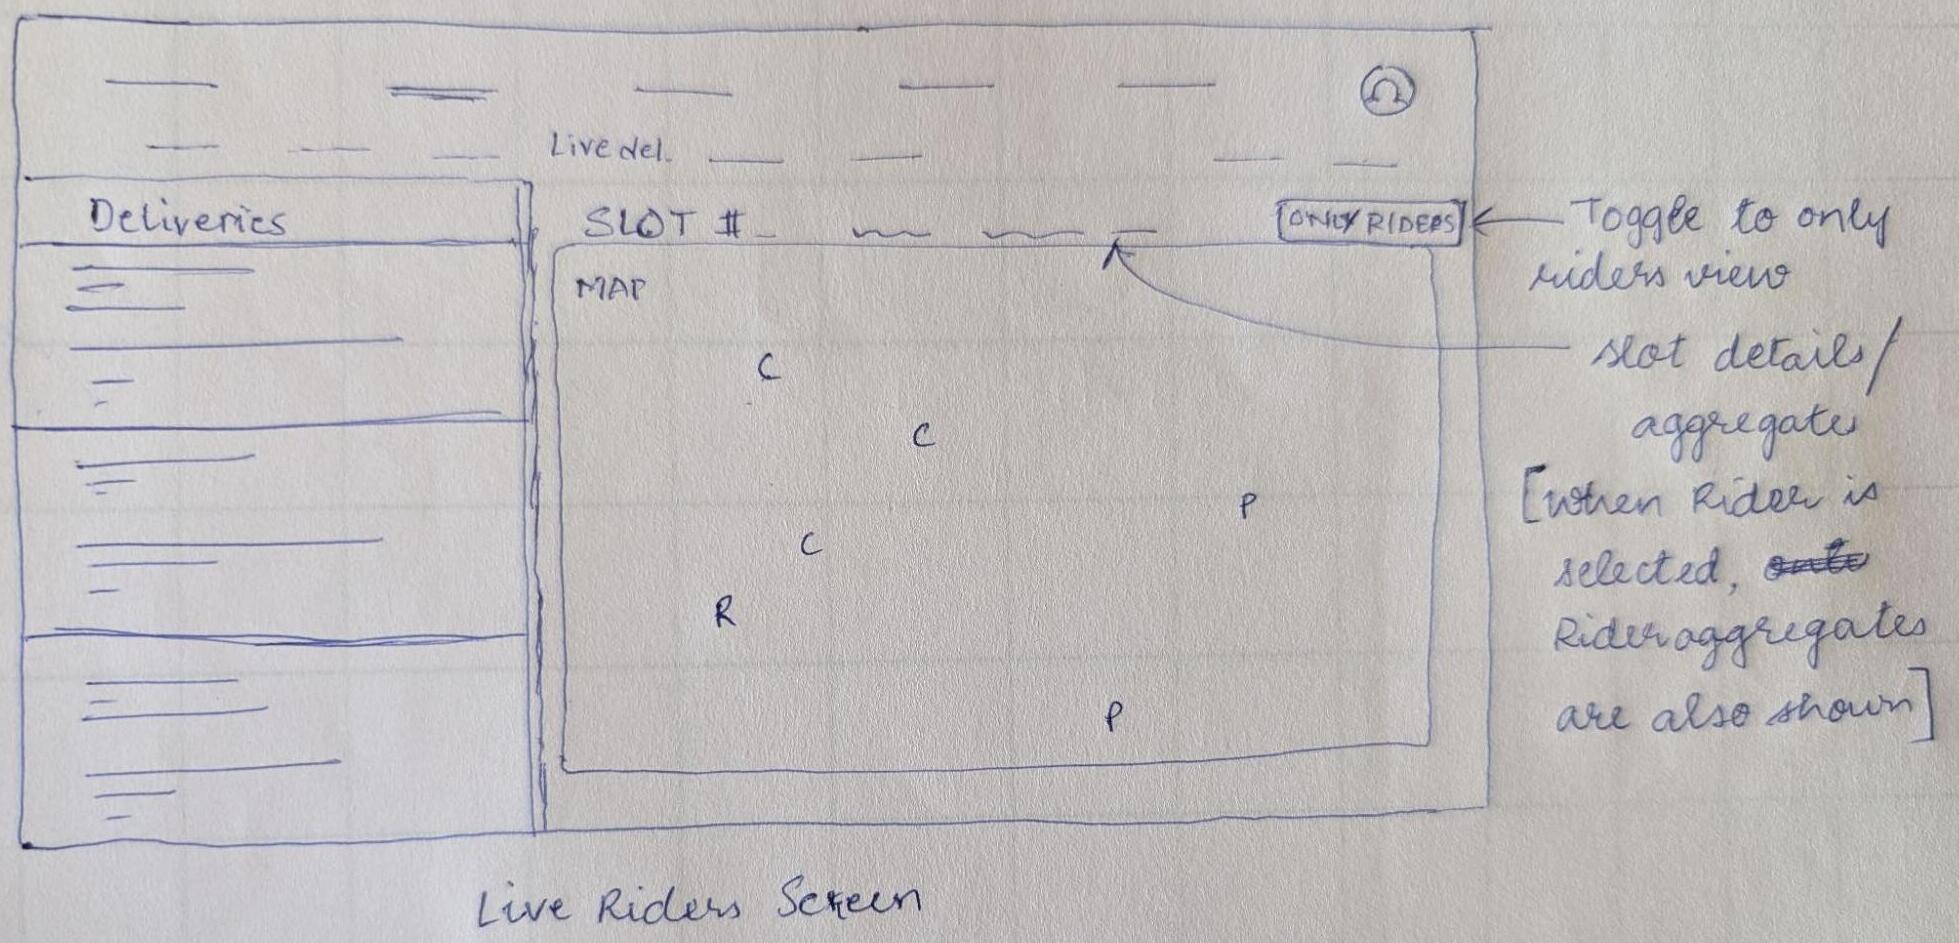 Live del.
Deliveries
SLOT #
ONLY RIDERS
Toggle to only
riders view
MAP
slot details/
aggregates
[When Rider is
selected,
Rider aggregates
are also shown]
C
C
P
C
R
P
Live Riders Screen